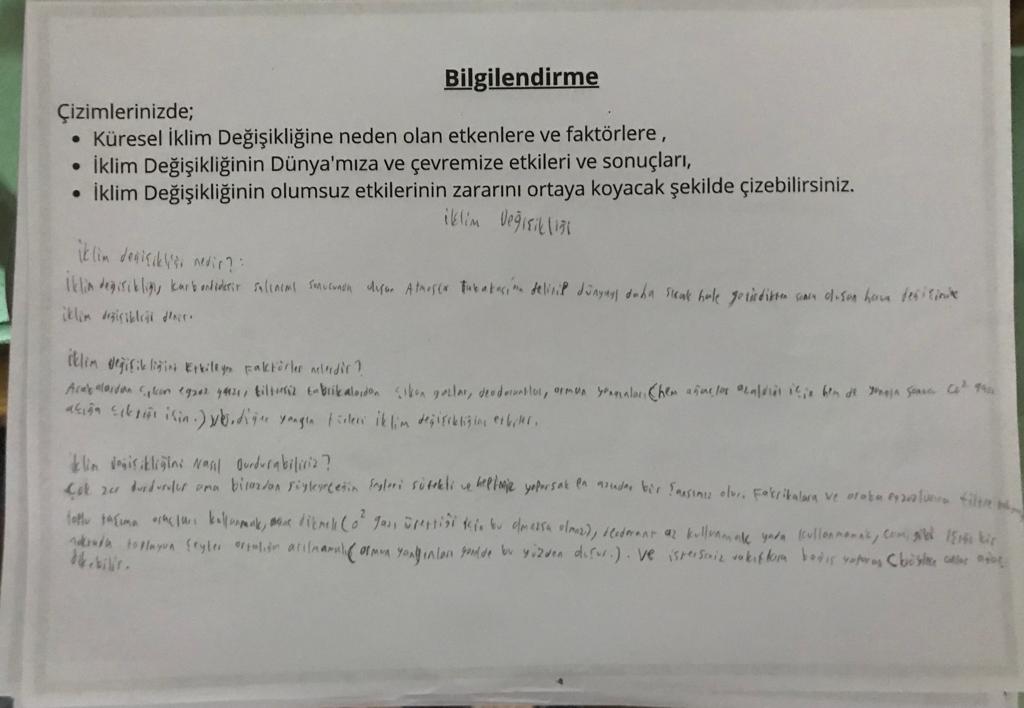 Bilgilendirme
Çizimlerinizde;
• Küresel İklim Değişikliğine neden olan etkenlere ve faktörlere ,
• İklim Değişikliğinin Dünya'mıza ve çevremize etkileri ve sonuçları,
• İklim Değişikliğinin olumsuz etkilerinin zararını ortaya koyacak şekilde çizebilirsiniz.
İklim Değişikliği
İklim değişikliği nedir?:
İklim değişikliği, karbondioksit salınımı sonucunda oluşan Atmosfer tabakasını delinip dünyayı daha sıcak hale getirdikten sonra oluşan hava değişimine
iklim değişikliği denir.
İklim Değişikliğini Etkileyen Faktörler nelerdir?
Arabalardan çıkan egzoz gazı, filtresiz fabrikalardan çıkan gazlar, deodorantlar, orman yangınları (hem ağaçlar azaldığı için hem de yangın sonucu Co² gazı
açığa çıktığı için.) vb. diğer yangın türleri iklim değişikliğini etkiler.
İklim Değişikliğini Nasıl Durdurabiliriz?
Çok zor durdurulur ama birazdan söyleyeceğim şeyleri sürekli ve yaparsak en azından bir şansımız olur. Fabrikalara ve araba egzozlarına filtre
toplu taşıma araçları kullanmak, ağaç dikmek (o² gazı ürettiği için bu olmazsa olmaz), deodorant az kullanmak yada kullanmamak, cam gibi ışığı bir
noktada toplayan şeyler ortalığa atılmamalı (orman yangınları genelde bu yüzden oluşur.). Ve isterseniz vakıflara bağış yaparız (böylece onlar ağaç
dikebilir.